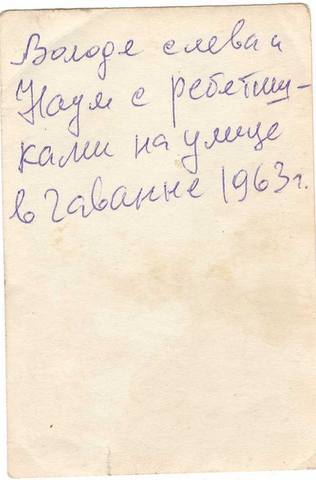 Володя слева и
Наум с ребятиш-
ками на улице
в Гаванне 1963 г.